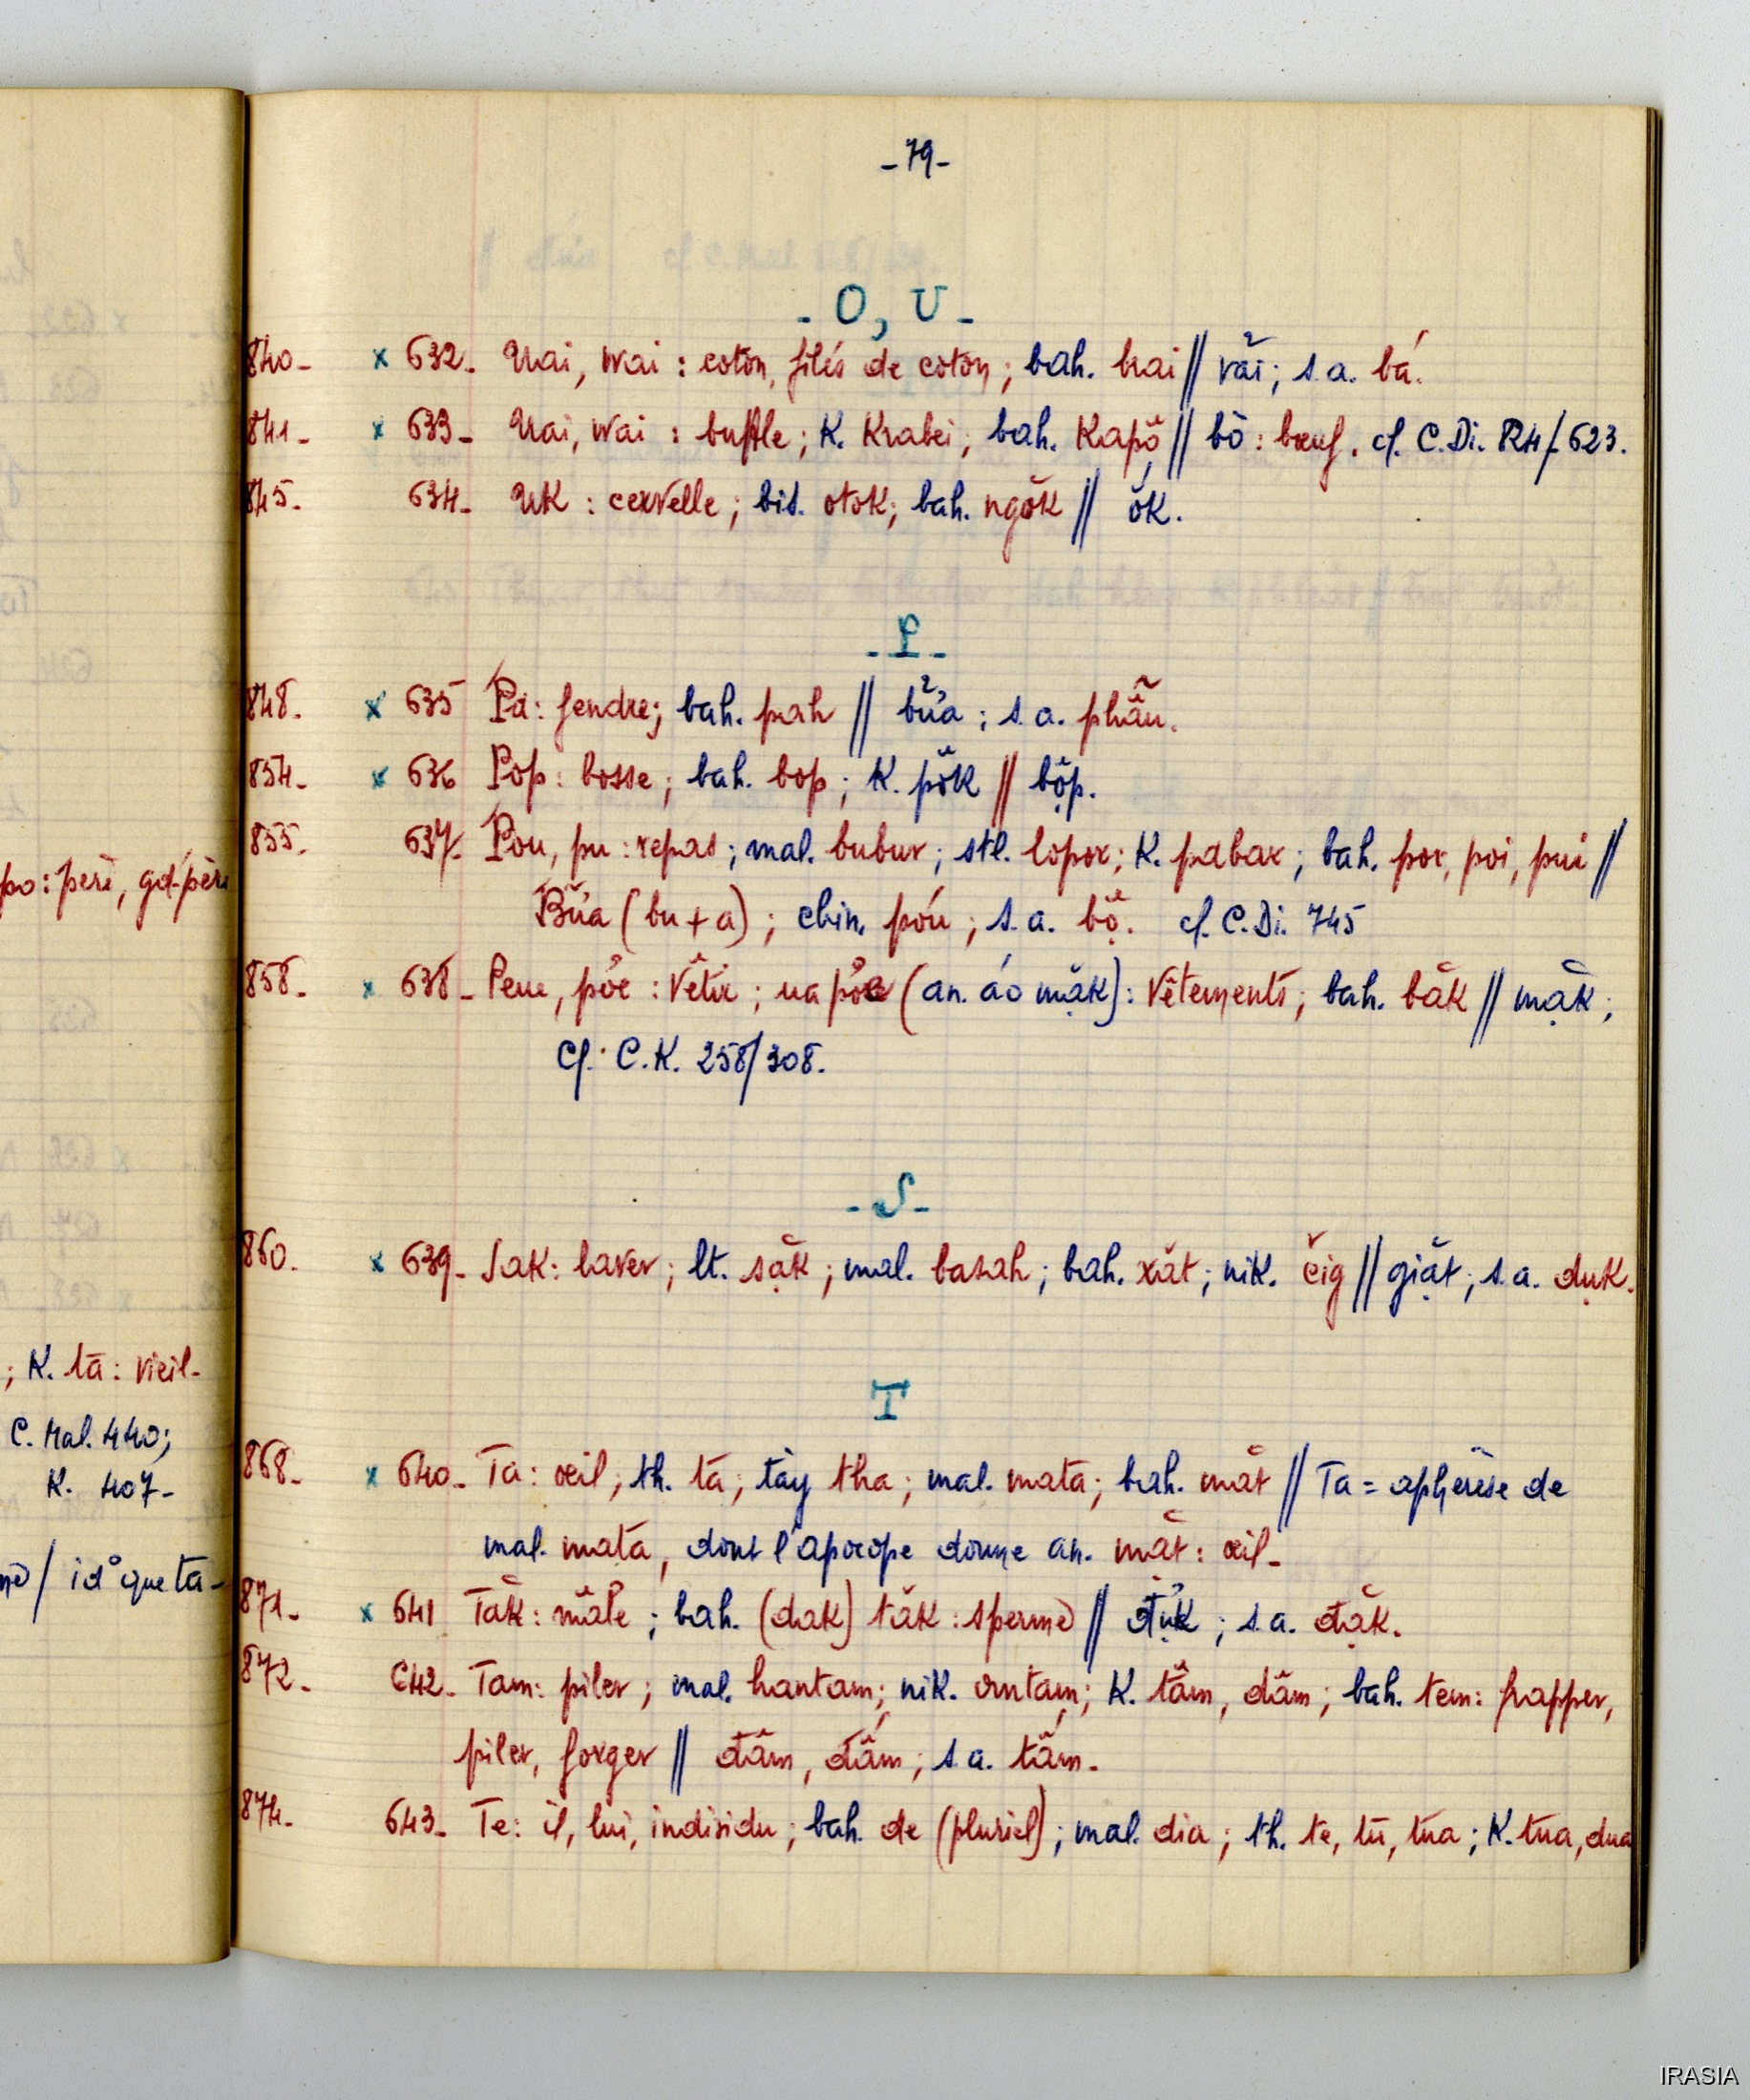 -79-
- O, U -
840- x 632- Uai, wai : coton, filés de coton ; bah. brai // vải ; s.a. bá.
841- x 633- Uai, wai : buffle ; K. Krabei ; bah. Kapô // bò : bœuf. cf. C.Di. 
845- 634- UK : cervelle ; bis. otok ; bah. ngŏk // ŏk.
- P -
848. x 635 Pa : fendre ; bah. pah // bửa ; s.a. phẫu.
854- x 636 Pop : bosse ; bah. bop ; K. pŏk // bộp.
855- 637- Pou, pu : repas ; mal. bubur ; stl. lopor ; K. pabar ; bah. por, poi, pui //
Bữa (bu + a) ; chin. póu ; s.a. bộ. cf. C.Di. 745
po : père, gd-père
858- x 638- Peu, : vêtir ; (an. áo mặk) : vêtements ; bah. băk // mặk ;
cf. C.K. 258/308.
- S -
860. x 639- Sak : laver ; lt. sặk ; mal. basah ; bah. xăt ; nik. čig // giặt ; s.a. duk.
; K. tā : vieil-
T
C. Mal. 440 ;
868- x 640- Ta : œil ; th. tā ; tày tha ; mal. mata ; bah. măt // Ta = aphérèse de
K. 407-
mal. mata, dont l'apocope donne an. măt : œil-
/ id° que ta-
871- x 641 Tăk : mâle ; bah. (dak) tăk : sperme // đựk ; s.a. đặk.
872- 642- Tam : piler ; mal. hantam ; nik. ; K. tâm, dâm ; bah. tem : frapper,
piler, forger // đâm, đấm ; s.a. tấm.
874- 643- Te : il, lui, individu ; bah. de (pluriel) ; mal. dia ; th. te, tū, tūa ; K. tua, dua
IRASIA